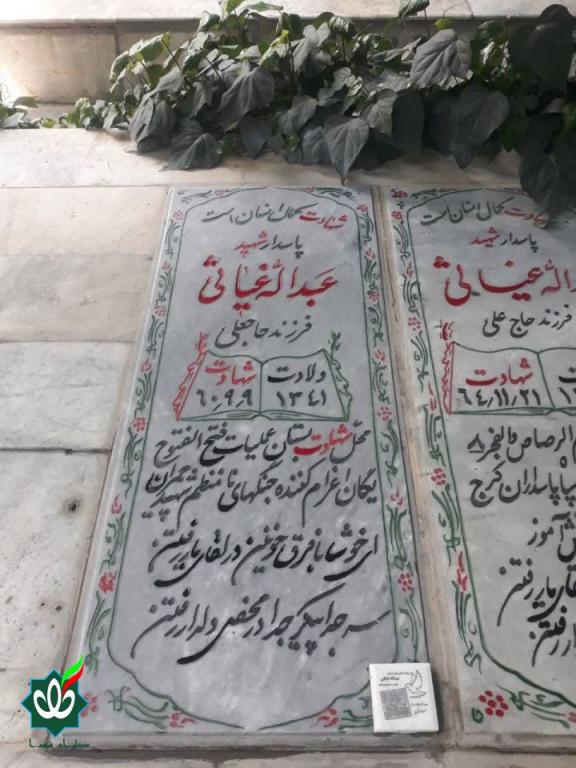 شهادت کمال انسان است
پاسدار شهید
عبداله غیاثی
فرزند حاجعلی
ولادت ۱۳۴۱
شهادت ۶۰٫۹٫۹
محل شهادت بستان عملیات فتح الفتوح
یگان اعزام کننده جنگهای نامنظم شهید چمران
ای خوشا با فرق خونین در لقای یار رفتن
سر جدا پیکر جدا در محفل دلدار رفتن
شهادت کمال انسان است
پاسدار شهید
اله غیاثی
فرزند حاج علی
شهادت
۶۴٫۱۱٫۲۱
الرصاص والفجر ۸
سپاه پاسداران کرج
آموز
یار رفتن
رفتن